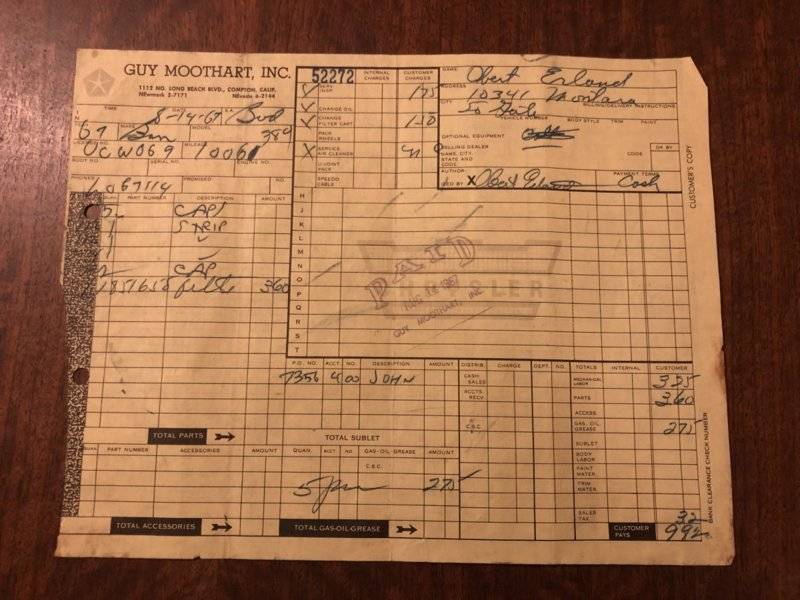 GUY MOOTHART, INC.
1112 NO. LONG BEACH BLVD., COMPTON, CALIF.
NEwmark 5-7171 NEvada 6-2144
52272
INTERNAL CHARGES
CUSTOMER CHARGES
NAME Obert Erland
ADDRESS 10341 Montara
CITY So Gate
SELLING/DELIVERY INSTRUCTIONS
VEHICLE NUMBER BODY STYLE TRIM PAINT
OPTIONAL EQUIPMENT
SELLING DEALER NAME, CITY, STATE AND CODE
CODE
DK BY
AUTHORIZED BY X Obert Erland
PAYMENT TERMS Cash
CUSTOMER'S COPY
TIME DATE 8-14-67
67 MODEL 384
UCW069 MILEAGE 10061
ENGINE NO.
PHONE PROMISED NO.
LO 67114
SERV INSP 175
CHANGE OIL
CHANGE FILTER CART 150
PACK WHEELS
SERVICE AIR CLEANER
U-JOINT PACK
SPEEDO CABLE
H
J
K
L
M
N
O
P
Q
R
S
T
PAID
AUG 14 1967
GUY MOOTHART, INC.
CHRYSLER
QUAN. PART NUMBER DESCRIPTION AMOUNT
CAP
STRIP
CAP
1851658 filte 360
TOTAL PARTS
P.O. NO. ACCT. NO. DESCRIPTION AMOUNT
7356 400 JOHN
TOTAL SUBLET
QUAN. PART NUMBER ACCESSORIES AMOUNT
TOTAL ACCESSORIES
QUAN. ACCT NO GAS-OIL-GREASE AMOUNT
C.S.C.
5 275
TOTAL GAS-OIL-GREASE
DISTRIB. CHARGE DEPT. NO. TOTALS INTERNAL CUSTOMER
CASH SALES
ACCTS. RECV.
MECHANICAL LABOR 325
PARTS 360
ACCESS.
GAS, OIL, GREASE 275
SUBLET
BODY LABOR
PAINT MATER.
TRIM MATER.
SALES TAX 32
CUSTOMER PAYS 992
BANK CLEARANCE CHECK NUMBER